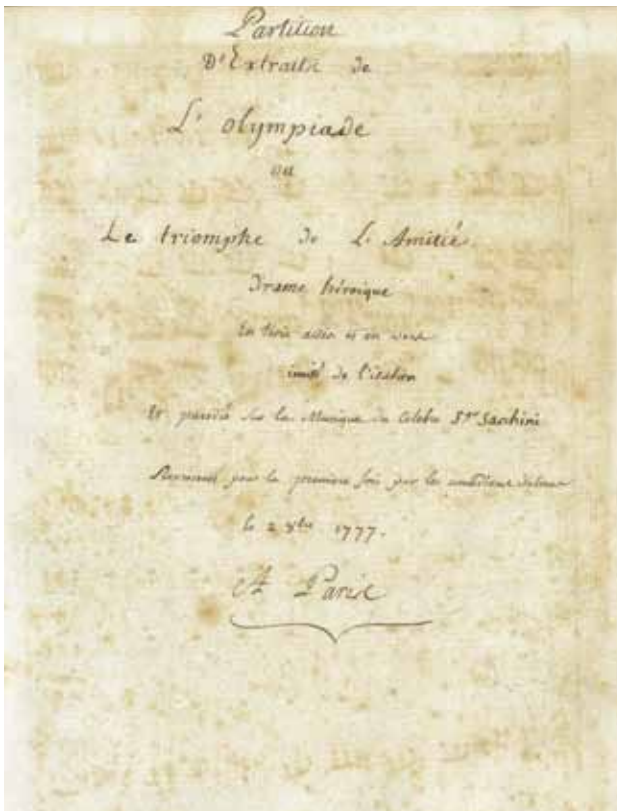 Partition
D'Extraits de
L'olympiade
ou
Le triomphe de L'Amitié.
Drame héroique
En trois actes et en vers
imité de l'italien
Et parodié sur la Musique du Celebre Sr. Sacchini
Représenté pour la premiere fois par les comédiens italiens
le 2 8bre 1777.
A Paris